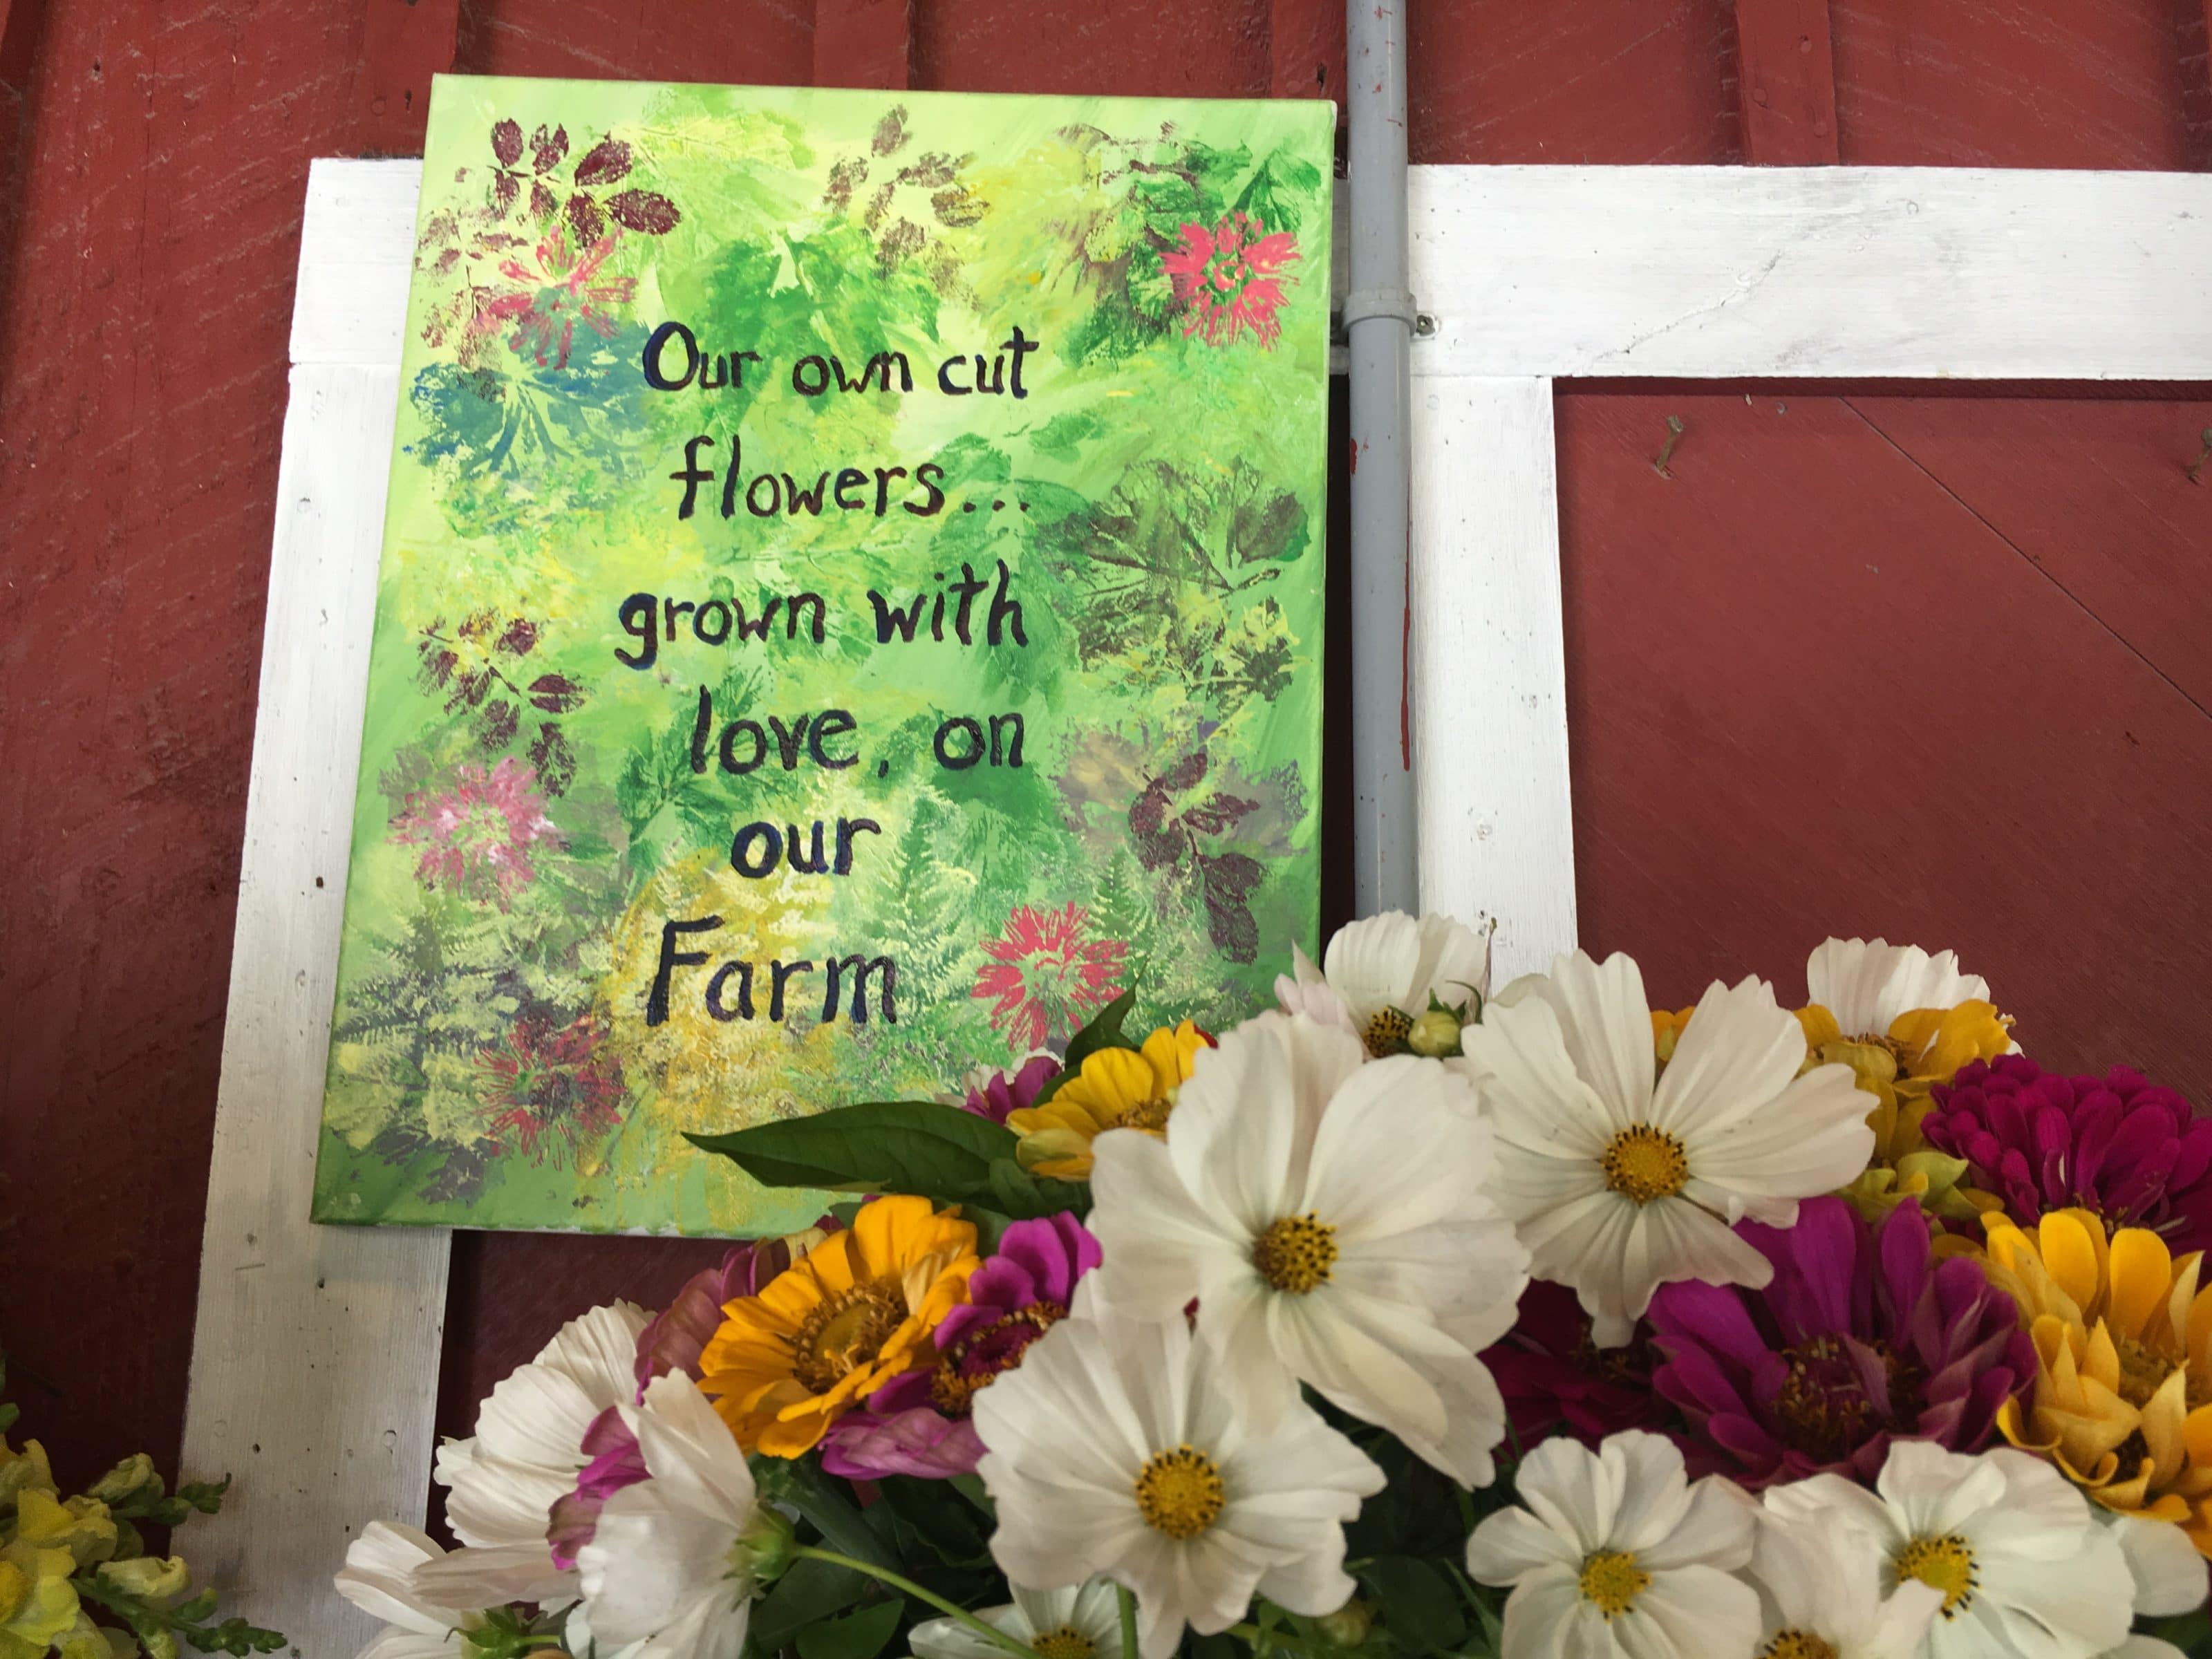 Our own cut
flowers...
grown with
love, on
our
Farm